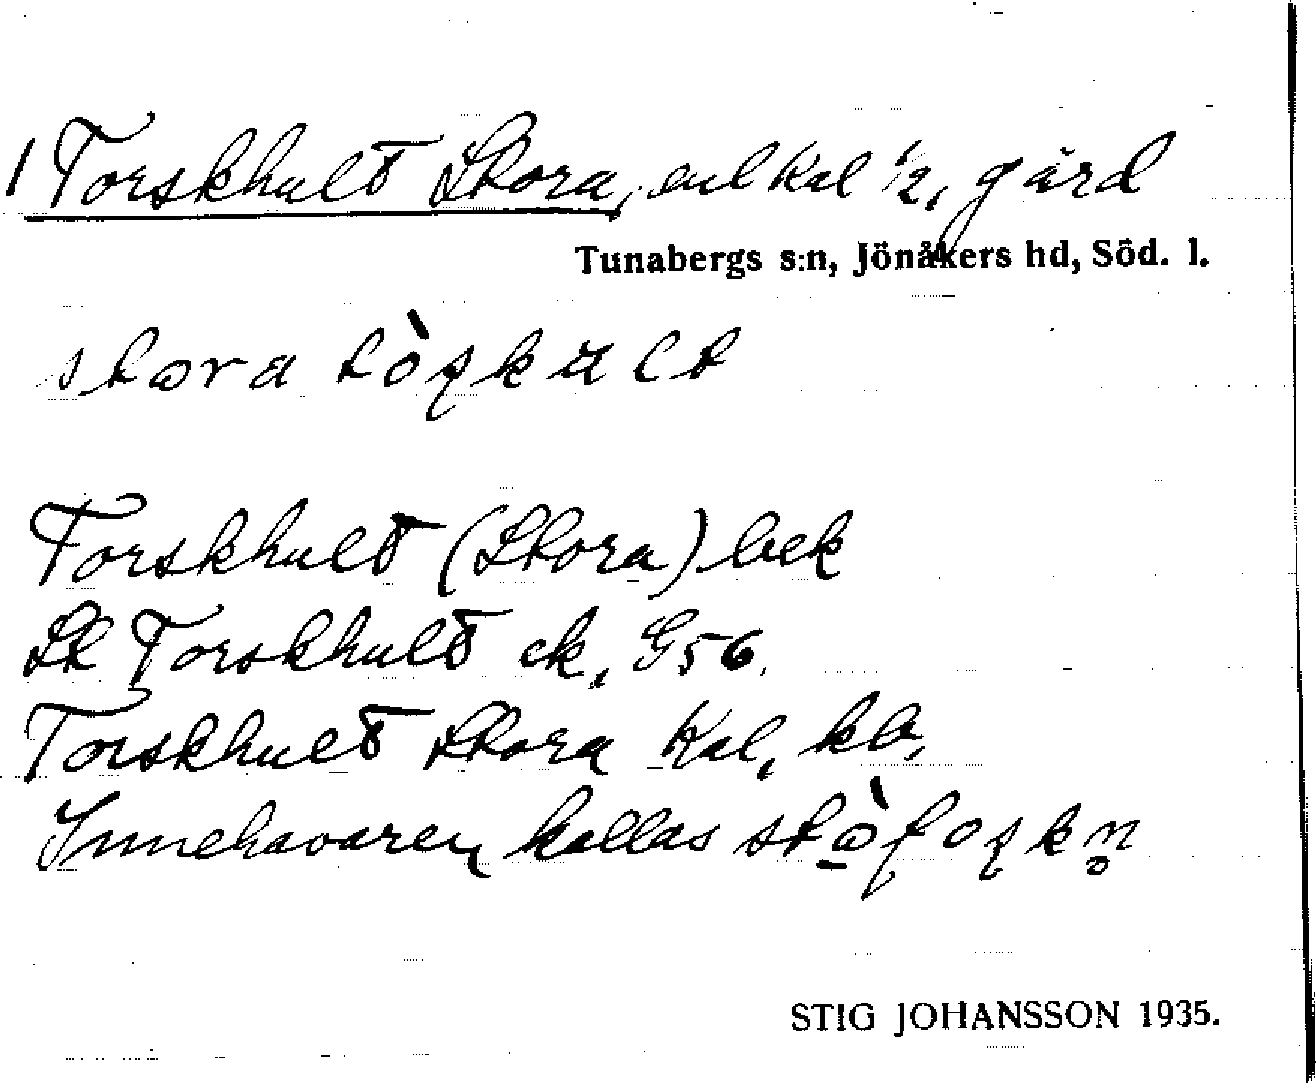 1 Torskhult Stora, enl kal 1/2, gård
Tunabergs s:n, Jönåkers hd, Söd. l.
stora tòskult
Torskhult (Stora) bek
St Torskhult ek, G56.
Torskhult Stora Kal, kb,
Innehavaren kallas
STIG JOHANSSON 1935.